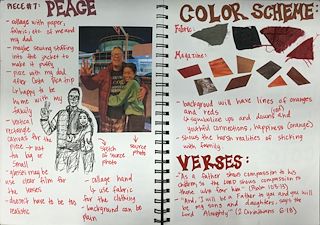 PIECE #7: PEACE
- collage with paper,
fabric, etc. of me and
my dad
- maybe sewing stuffing
into the jacket to
make it puffy
- pic with my dad
after Costa Rica trip
↳ happy to be
home with my
family
- vertical
rectangle
canvas for the
piece → not
too big or
small
- glasses may be
use clear film for
the lenses
- doesn't have to be too
realistic
↳ sketch
of source
photo
source
photo
- collage hand
↳ use fabric
for the clothing
- background can be
pain
COLOR SCHEME:
Fabric:
Magazine:
- background will have lines of oranges
and reds (red)
↳ symbolize ups and downs and
youthful connections, happiness (orange)
versus the harsh realities of sticking
with family
VERSES:
- "As a father shows compassion to his
children, so the Lord shows compassion to
those who fear him." (Psalm 103:13)
- "And, I will be a Father to you and you will
be my sons and daughters, says the
Lord Almighty." (2 Corinthians 6:18)